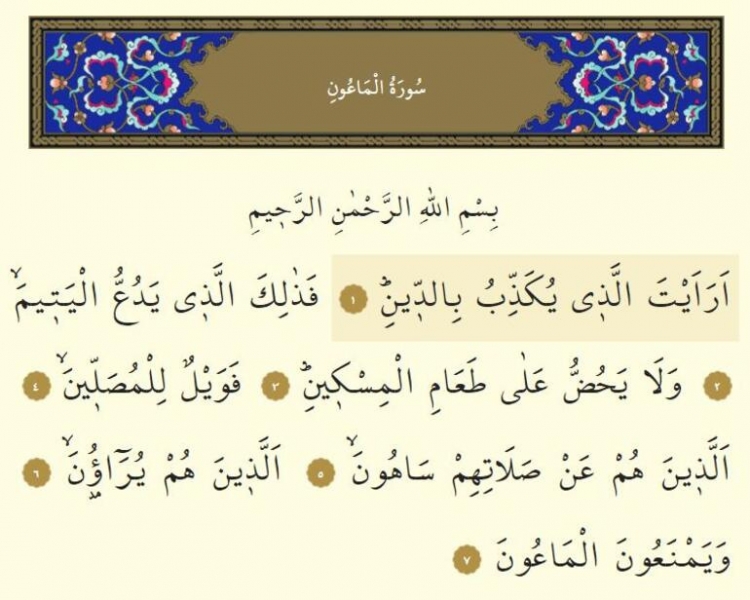 سُورَةُ الْمَاعُونِ
بِسْمِ اللّٰهِ الرَّحْمٰنِ الرَّحٖيمِ
اَرَاَيْتَ الَّذٖى يُكَذِّبُ بِالدّٖينِؕ ١ فَذٰلِكَ الَّذٖى يَدُعُّ الْيَتٖيمَۙ
٢ وَلَا يَحُضُّ عَلٰى طَعَامِ الْمِسْكٖينِؕ ٣ فَوَيْلٌ لِلْمُصَلّٖينَۙ ٤
اَلَّذٖينَ هُمْ عَنْ صَلَاتِهِمْ سَاهُونَۙ ٥ اَلَّذٖينَ هُمْ يُرَٓاؤُ۫نَۙ ٦
وَيَمْنَعُونَ الْمَاعُونَ ٧